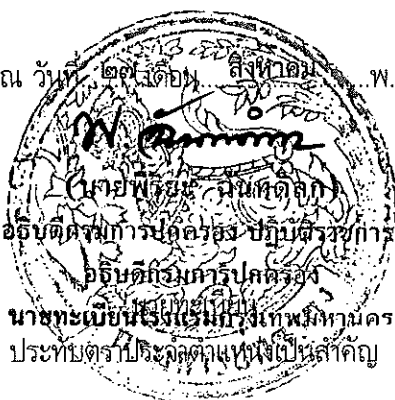 ณ วันที่ ๒๗ เดือน สิงหาคม พ.
(นายพีริยะ ฉันทดิลก)
อธิบดีกรมการปกครอง ปฏิบัติราชการ
อธิบดีกรมการปกครอง
นายทะเบียน
นายทะเบียนโรงแรมกรุงเทพมหานคร
ประทับตราประจำตำแหน่งเป็นสำคัญ